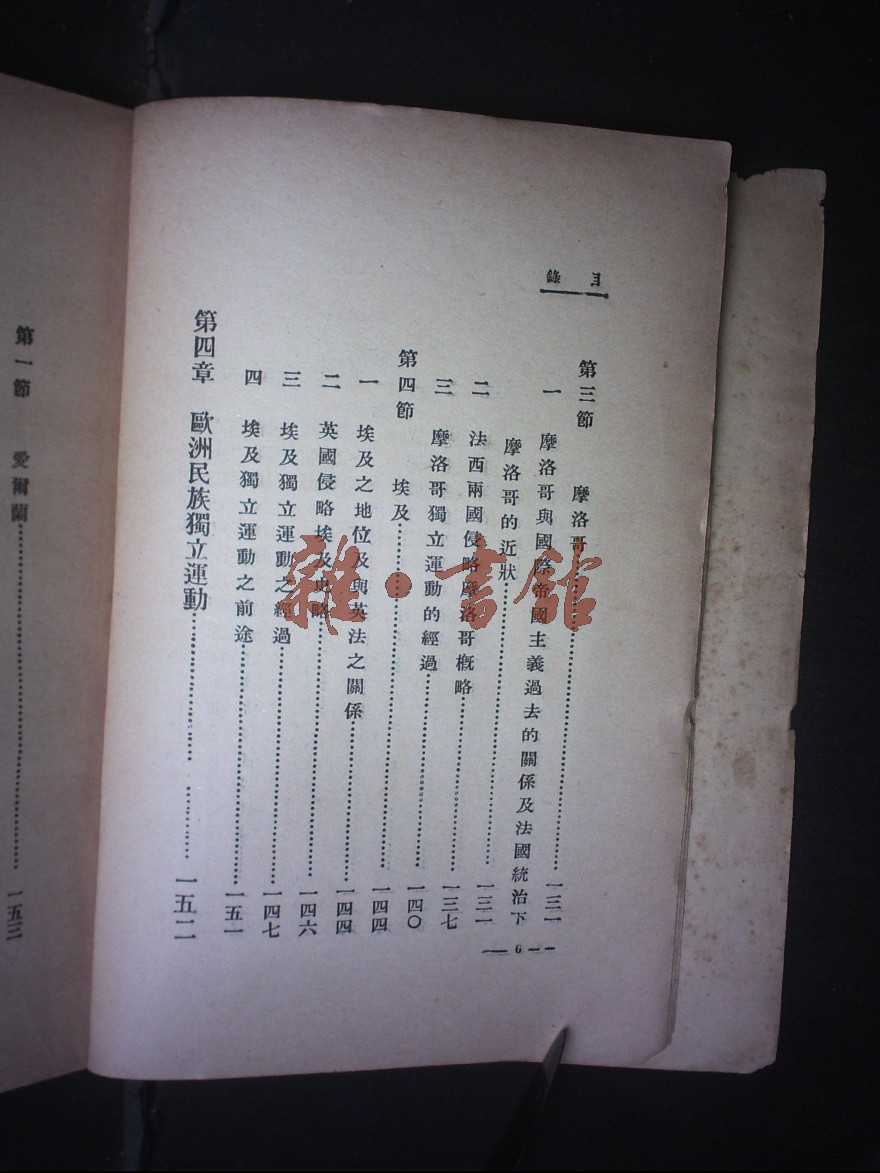 目錄
第三節 摩洛哥……一三一
一 摩洛哥與國際帝國主義過去的關係及法國統治下
摩洛哥的近狀……一三一
二 法西兩國侵略摩洛哥概略……一三七
三 摩洛哥獨立運動的經過……一四〇
第四節 埃及……一四四
一 埃及之地位及與英法之關係……一四四
二 英國侵略埃及史略……一四六
三 埃及獨立運動之經過……一四七
四 埃及獨立運動之前途……一五一
第四章 歐洲民族獨立運動……一五二
6
第一節 愛爾蘭……一五三
雜·書館